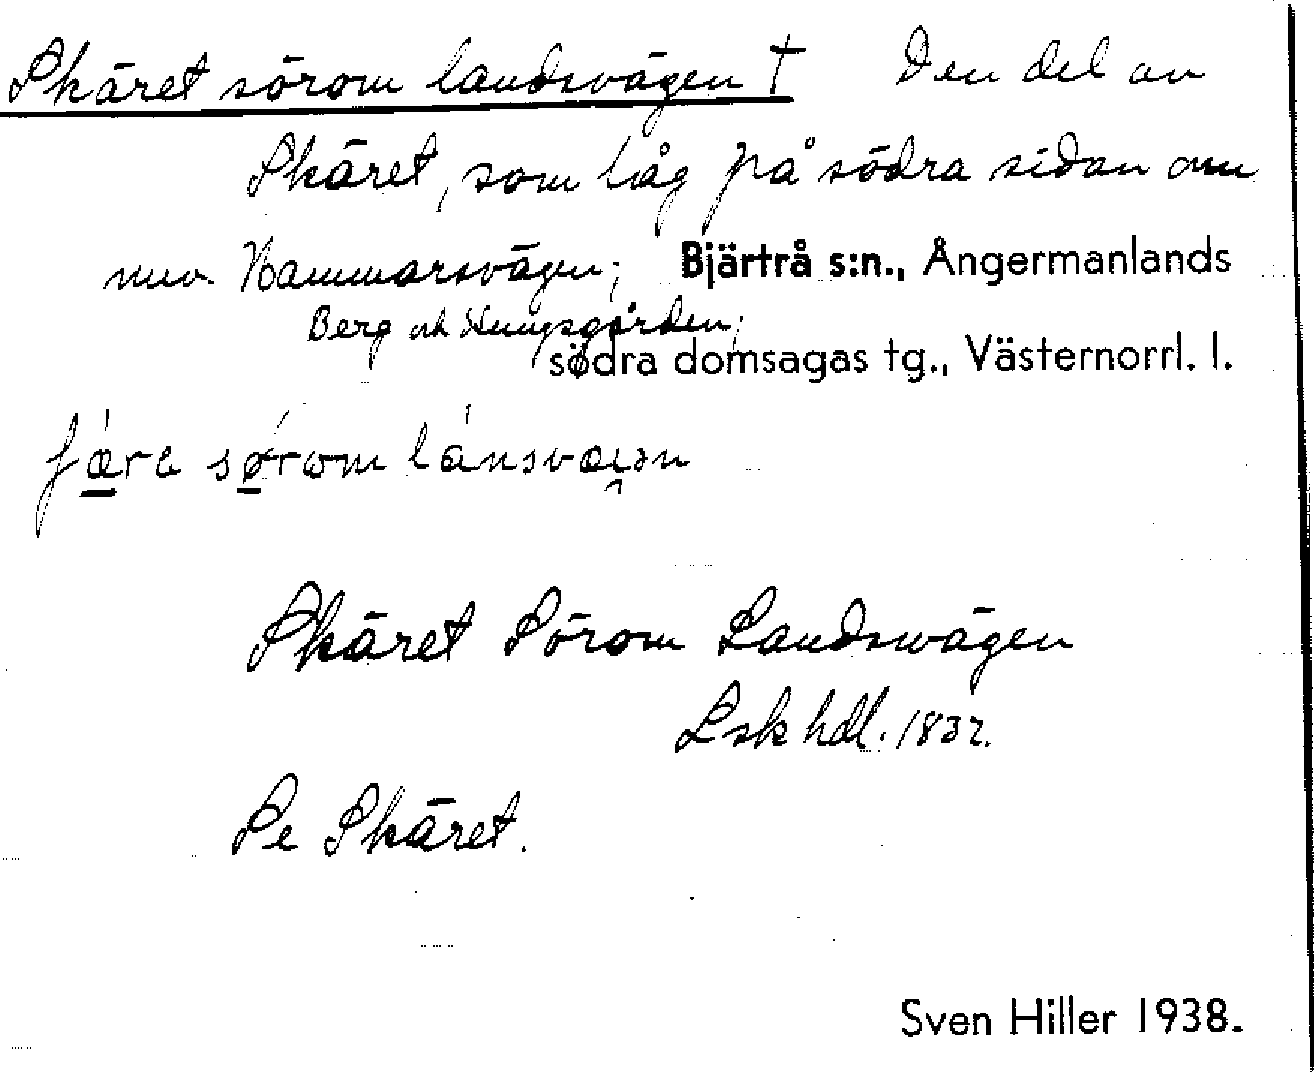 Skäret sörom landsvägen † Den del av
Skäret, som låg på södra sidan om
nuv. Hammarsvägen; Bjärtrå s:n., Ångermanlands
Berg och Kungsgården;
södra domsagas tg., Västernorrl. l.
sörom
Skäret Sörom Landswägen
Lsk hdl. 1832.
Se Skäret.
Sven Hiller 1938.